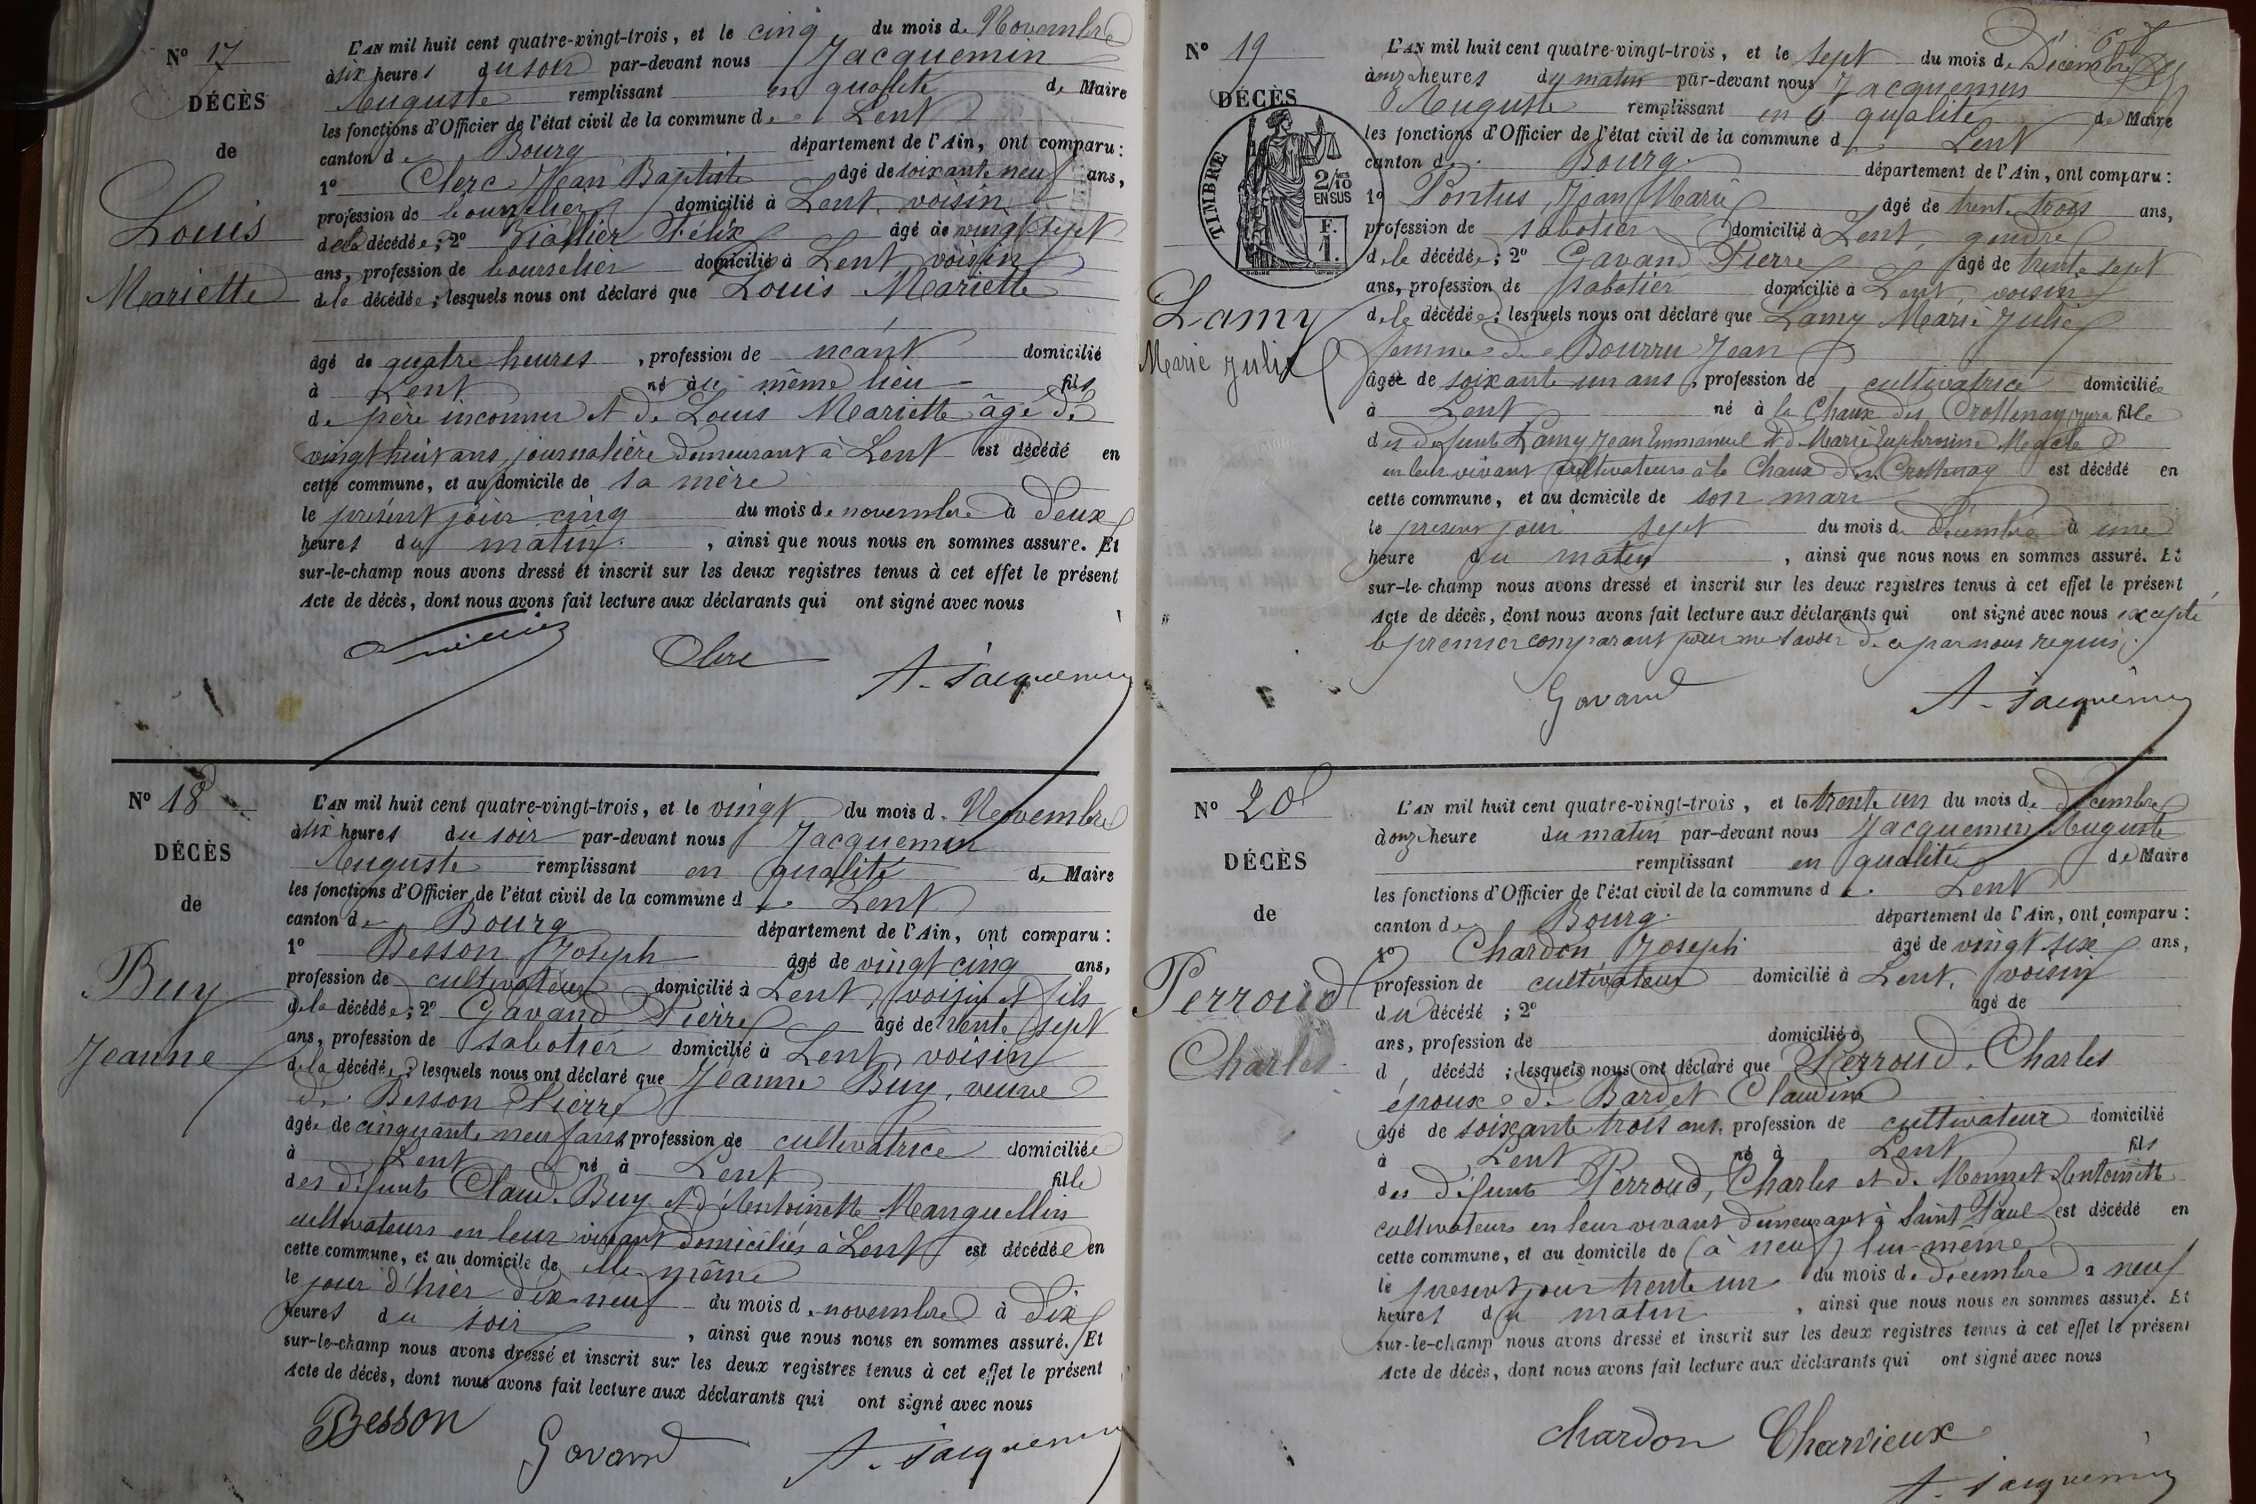 N° 17
DÉCÈS
de
Louis
Mariette
L'AN mil huit cent quatre-vingt-trois, et le cinq du mois de Novembre
à six heures du soir par-devant nous Jacquemin
Auguste remplissant en qualité de Maire
les fonctions d'Officier de l'état civil de la commune de Lent
canton de Bourg département de l'Ain, ont comparu :
1° Clerc Jean Baptiste âgé de soixante neuf ans,
profession de bourrelier domicilié à Lent voisin
de la décédée ; 2° Félix âgé de vingt sept
ans, profession de bourrelier domicilié à Lent voisin
de la décédée ; lesquels nous ont déclaré que Louis Mariette
âgé de quatre heures , profession de néant domicilié
à Lent né au même lieu fils
de père inconnu et de Louis Mariette âgé de
vingt huit ans, journalière demeurant à Lent est décédé en
cette commune, et au domicile de sa mère
le présent jour cinq du mois de novembre à deux
heures du matin , ainsi que nous nous en sommes assuré. Et
sur-le-champ nous avons dressé et inscrit sur les deux registres tenus à cet effet le présent
Acte de décès, dont nous avons fait lecture aux déclarants qui ont signé avec nous
Clerc A. Jacquemin
N° 18
DÉCÈS
de
Buy
Jeanne
L'AN mil huit cent quatre-vingt-trois, et le vingt du mois d. Novembre
à six heures du soir par-devant nous Jacquemin
Auguste remplissant en qualité de Maire
les fonctions d'Officier de l'état civil de la commune de Lent
canton de Bourg département de l'Ain, ont comparu :
1° Besson Joseph âgé de vingt cinq ans,
profession de cultivateur domicilié à Lent, voisin et fils
de la décédée ; 2° Gavand Pierre âgé de trente sept
ans, profession de sabotier domicilié à Lent, voisin
de la décédée ; lesquels nous ont déclaré que Jeanne Buy, veuve
de Besson Pierre
âgée de cinquante neuf ans, profession de cultivatrice domiciliée
à Lent né à Lent fille
des défunts Claude Buy et d'Antoinette Manguellin
cultivateurs en leur vivant domiciliés à Lent est décédée en
cette commune, et au domicile de elle même
le jour d'hier dix-neuf du mois de novembre à dix
heures du soir , ainsi que nous nous en sommes assuré. Et
sur-le-champ nous avons dressé et inscrit sur les deux registres tenus à cet effet le présent
Acte de décès, dont nous avons fait lecture aux déclarants qui ont signé avec nous
Besson Gavand A. Jacquemin
N° 19
DÉCÈS
TIMBRE
2/10
EN SUS
F.
1.
Lamy
Marie Julie
L'AN mil huit cent quatre-vingt-trois, et le sept du mois de Décembre
à onze heures du matin par-devant nous Jacquemin
Auguste remplissant en qualité de Maire
les fonctions d'Officier de l'état civil de la commune d Lent
canton de Bourg département de l'Ain, ont comparu :
1° Pontus, Jean Marie âgé de trente trois ans,
profession de sabotier domicilié à Lent, gendre
de la décédée ; 2° Gavand Pierre âgé de trente sept
ans, profession de sabotier domicilié à Lent, voisin
de la décédée ; lesquels nous ont déclaré que Lamy Marie Julie
femme de Bourru Jean
âgée de soixante un ans, profession de cultivatrice domiciliée
à Lent né à la Chaux des Crottenay Jura fille
des défunts Lamy Jean Emmanuel et de Marie Euphrosine
en leur vivant cultivateurs à la Chaux des Crottenay est décédé en
cette commune, et au domicile de son mari
le présent jour sept du mois de décembre à une
heure du matin , ainsi que nous nous en sommes assuré. Et
sur-le-champ nous avons dressé et inscrit sur les deux registres tenus à cet effet le présent
Acte de décès, dont nous avons fait lecture aux déclarants qui ont signé avec nous excepté
le premier comparant pour ne savoir de ce par nous requis.
Gavand A. Jacquemin
N° 20
DÉCÈS
de
Perroud
Charles
L'AN mil huit cent quatre-vingt-trois, et le trente un du mois de décembre
à onze heure du matin par-devant nous Jacquemin Auguste
remplissant en qualité de Maire
les fonctions d'Officier de l'état civil de la commune de Lent
canton de Bourg département de l'Ain, ont comparu :
1° Chardon Joseph âgé de vingt six ans,
profession de cultivateur domicilié à Lent, voisin
du décédé ; 2° âgé de
ans, profession de domicilié à
d décédé ; lesquels nous ont déclaré que Perroud, Charles
époux de Bardet Claudine
âgé de soixante trois ans, profession de cultivateur domicilié
à Lent né à Lent fils
des défunts Perroud, Charles et de Monnet Antoinette
cultivateurs en leur vivant demeurant à Saint Paul est décédé en
cette commune, et au domicile de (à neuf) lui-même
le présent jour trente un du mois de décembre à neuf
heures du matin , ainsi que nous nous en sommes assuré. Et
sur-le-champ nous avons dressé et inscrit sur les deux registres tenus à cet effet le présent
Acte de décès, dont nous avons fait lecture aux déclarants qui ont signé avec nous
Chardon Charvieux
A. Jacquemin